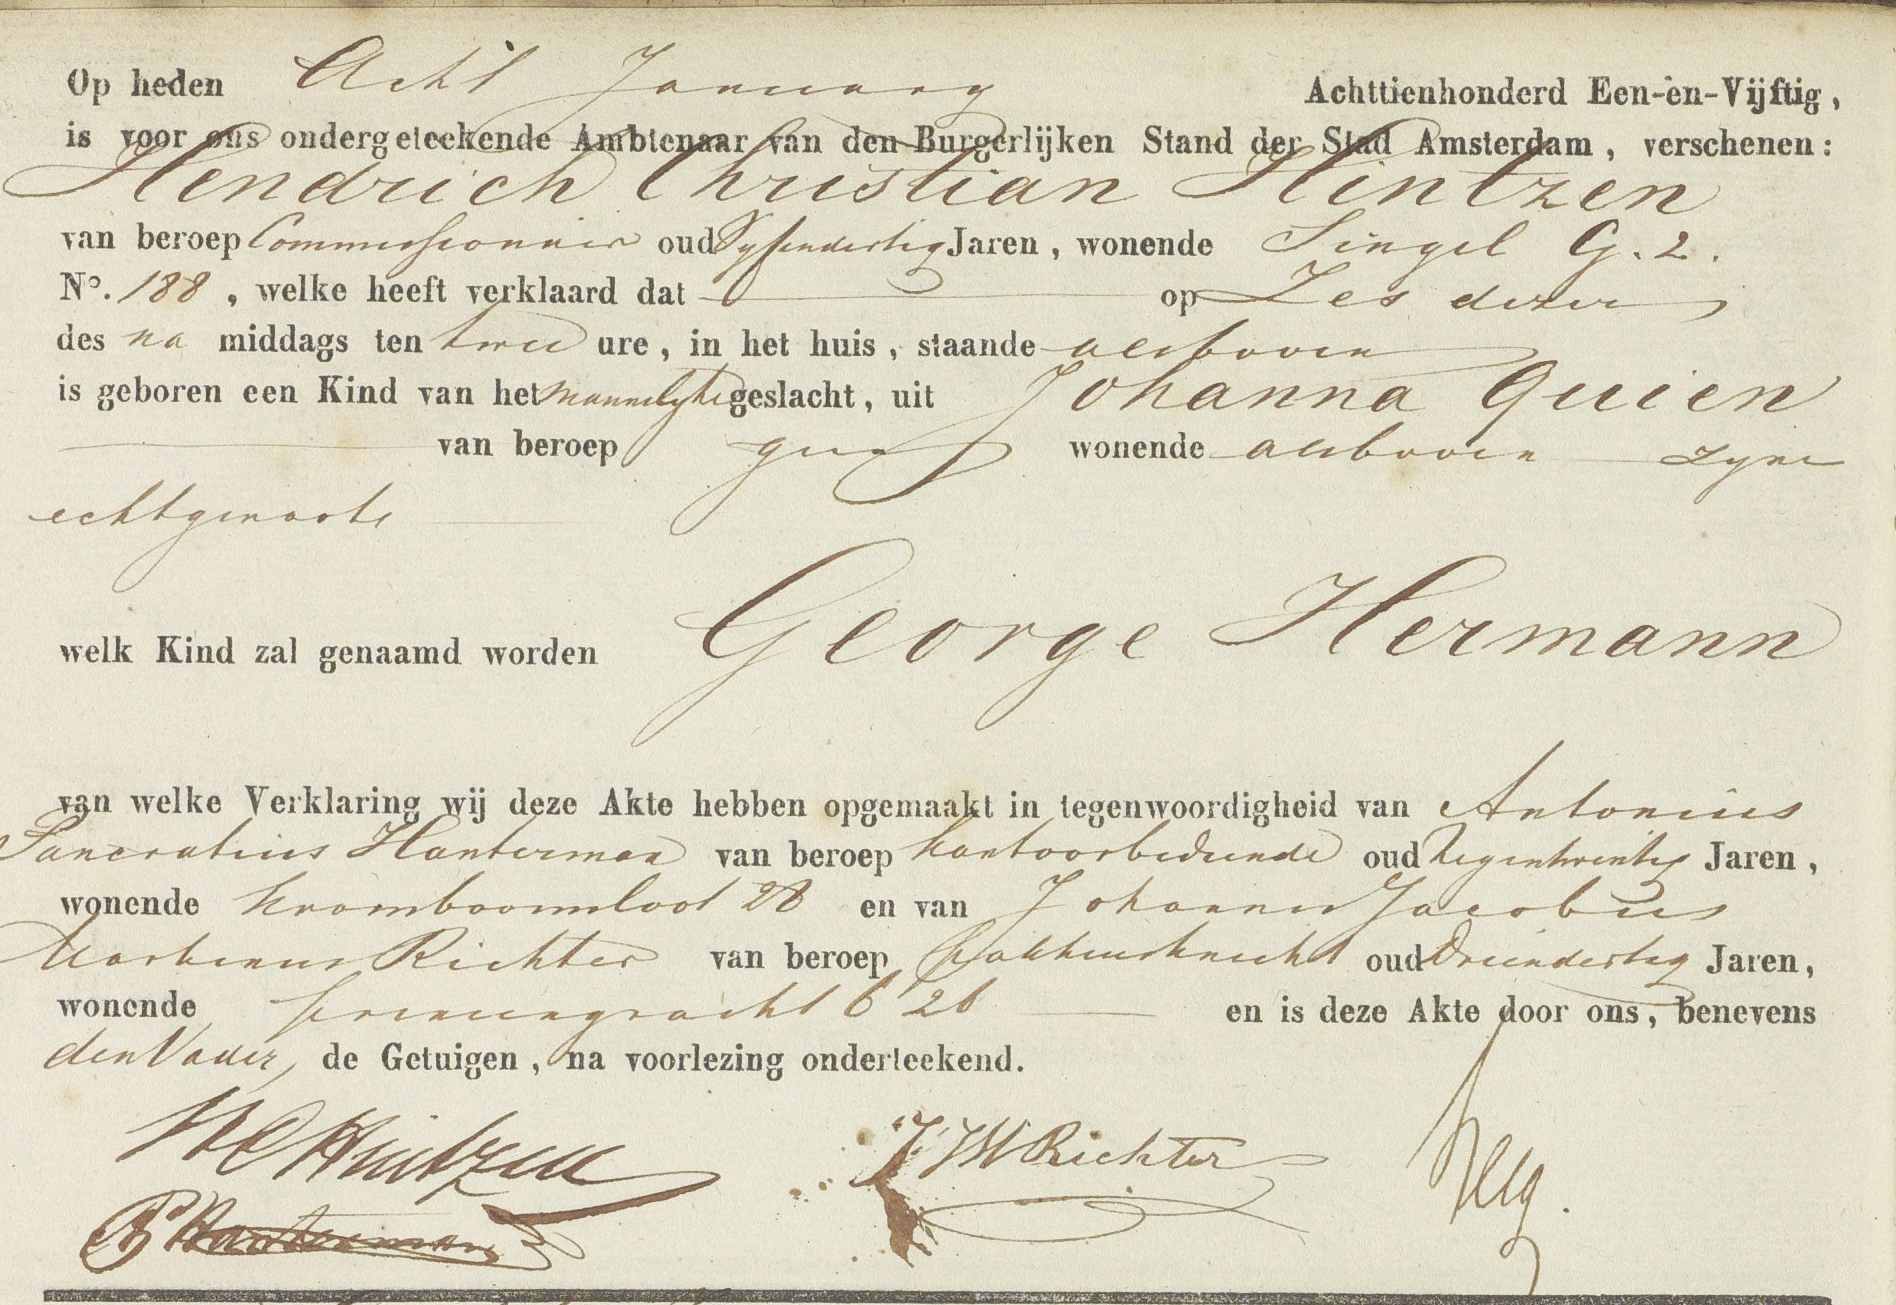 Op heden Acht January Achttienhonderd Een-en-Vijftig,
is voor ons ondergeteekende Ambtenaar van den Burgerlijken Stand der Stad Amsterdam, verschenen:
Hendrich Christian Hintzen
van beroep Commissionnair oud Vyfendertig Jaren, wonende Singel G. 2.
No. 188, welke heeft verklaard dat op Zes dezer
des na middags ten twee ure, in het huis, staande alsboven
is geboren een Kind van het mannelyke geslacht, uit Johanna Quien
van beroep geen wonende alsboven zyne
echtgenoote
welk Kind zal genaamd worden George Hermann
van welke Verklaring wij deze Akte hebben opgemaakt in tegenwoordigheid van Antonius
Pancratius Hanterman van beroep kantoorbediende oud Negentwintig Jaren,
wonende Kromboomsloot 28 en van Johannes Jacobus
Richter van beroep pakhuisknecht oud Drieendertig Jaren,
wonende Prinsengracht 626 en is deze Akte door ons, benevens
den Vader, de Getuigen, na voorlezing onderteekend.
HC Hintzen
Richter
Hanterman